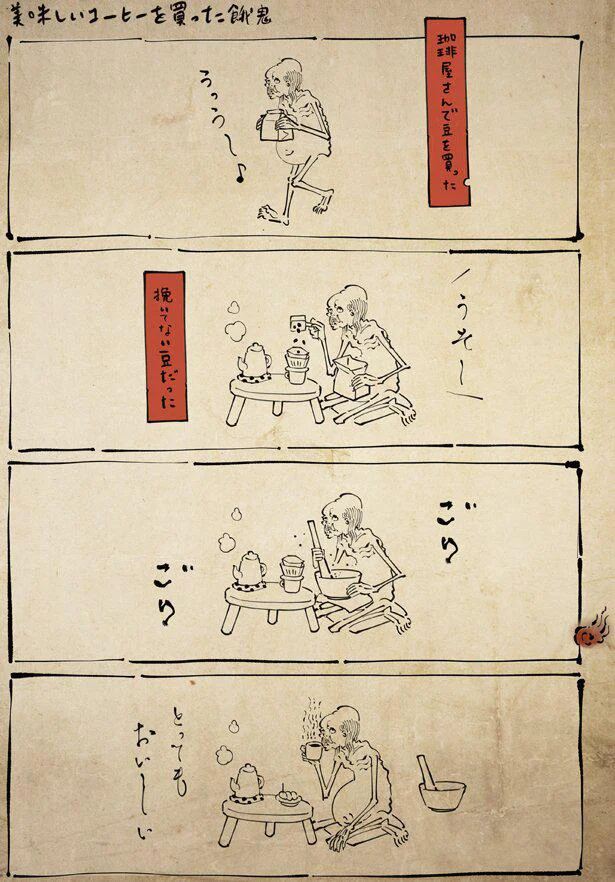 美味しいコーヒーを買った餓鬼
珈琲屋さんで豆を買った
うっうー♪
うそー
挽いてない豆だった
ごり
ごり
とっても
おいしい